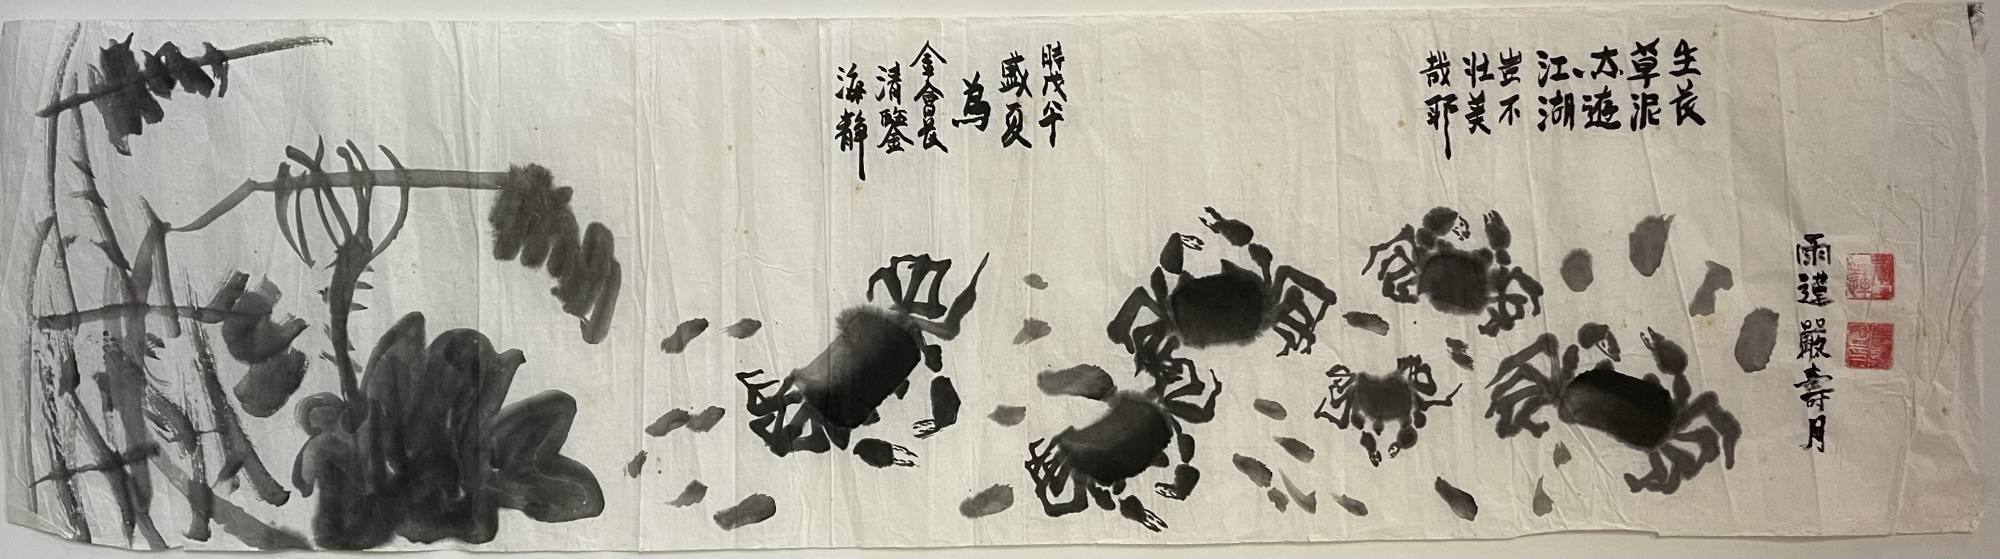 生長
草泥
亦遊
江湖
豈不
壯美
哉耶
時戊午
盛夏
為
金會長
清鑒
海靜
嚴壽月